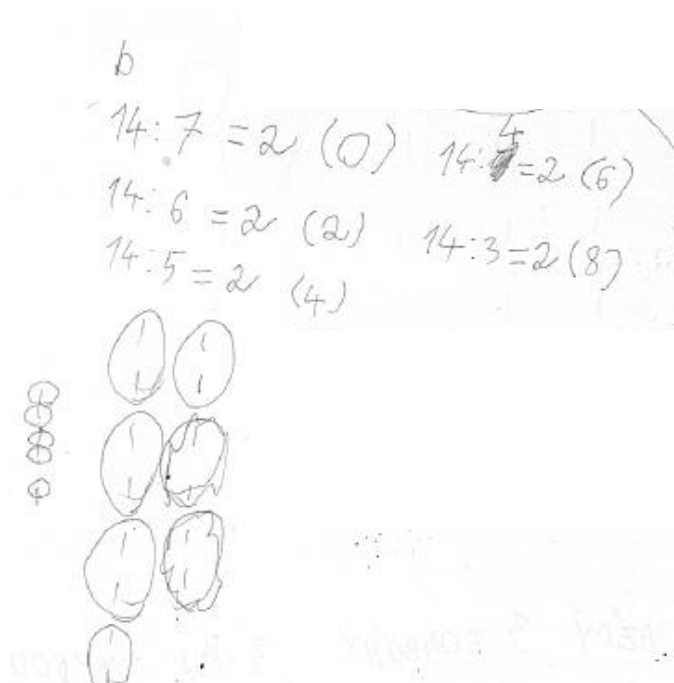 b
14:7=2 (0)
14:6=2 (2)
14:5=2 (4)
14:4=2 (6)
14:3=2(8)
3